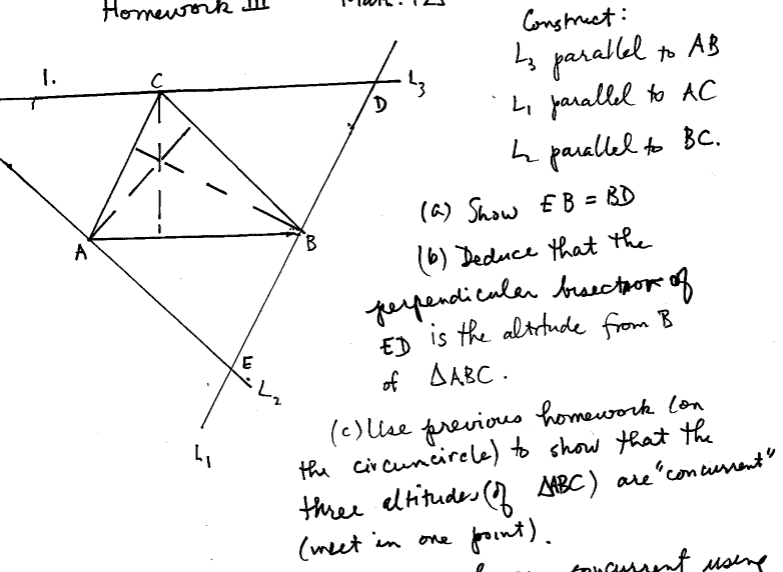 Homework III Math. 123
Construct:
L3 parallel to AB
L1 parallel to AC
L2 parallel to BC.
1.
C
L3
D
A
B
E
L2
L1
(a) Show EB = BD
(b) Deduce that the
perpendicular bisector of
ED is the altitude from B
of ΔABC.
(c) Use previous homework (on
the circumcircle) to show that the
three altitudes (of ΔABC) are "concurrent"
(meet in one point).
concurrent using